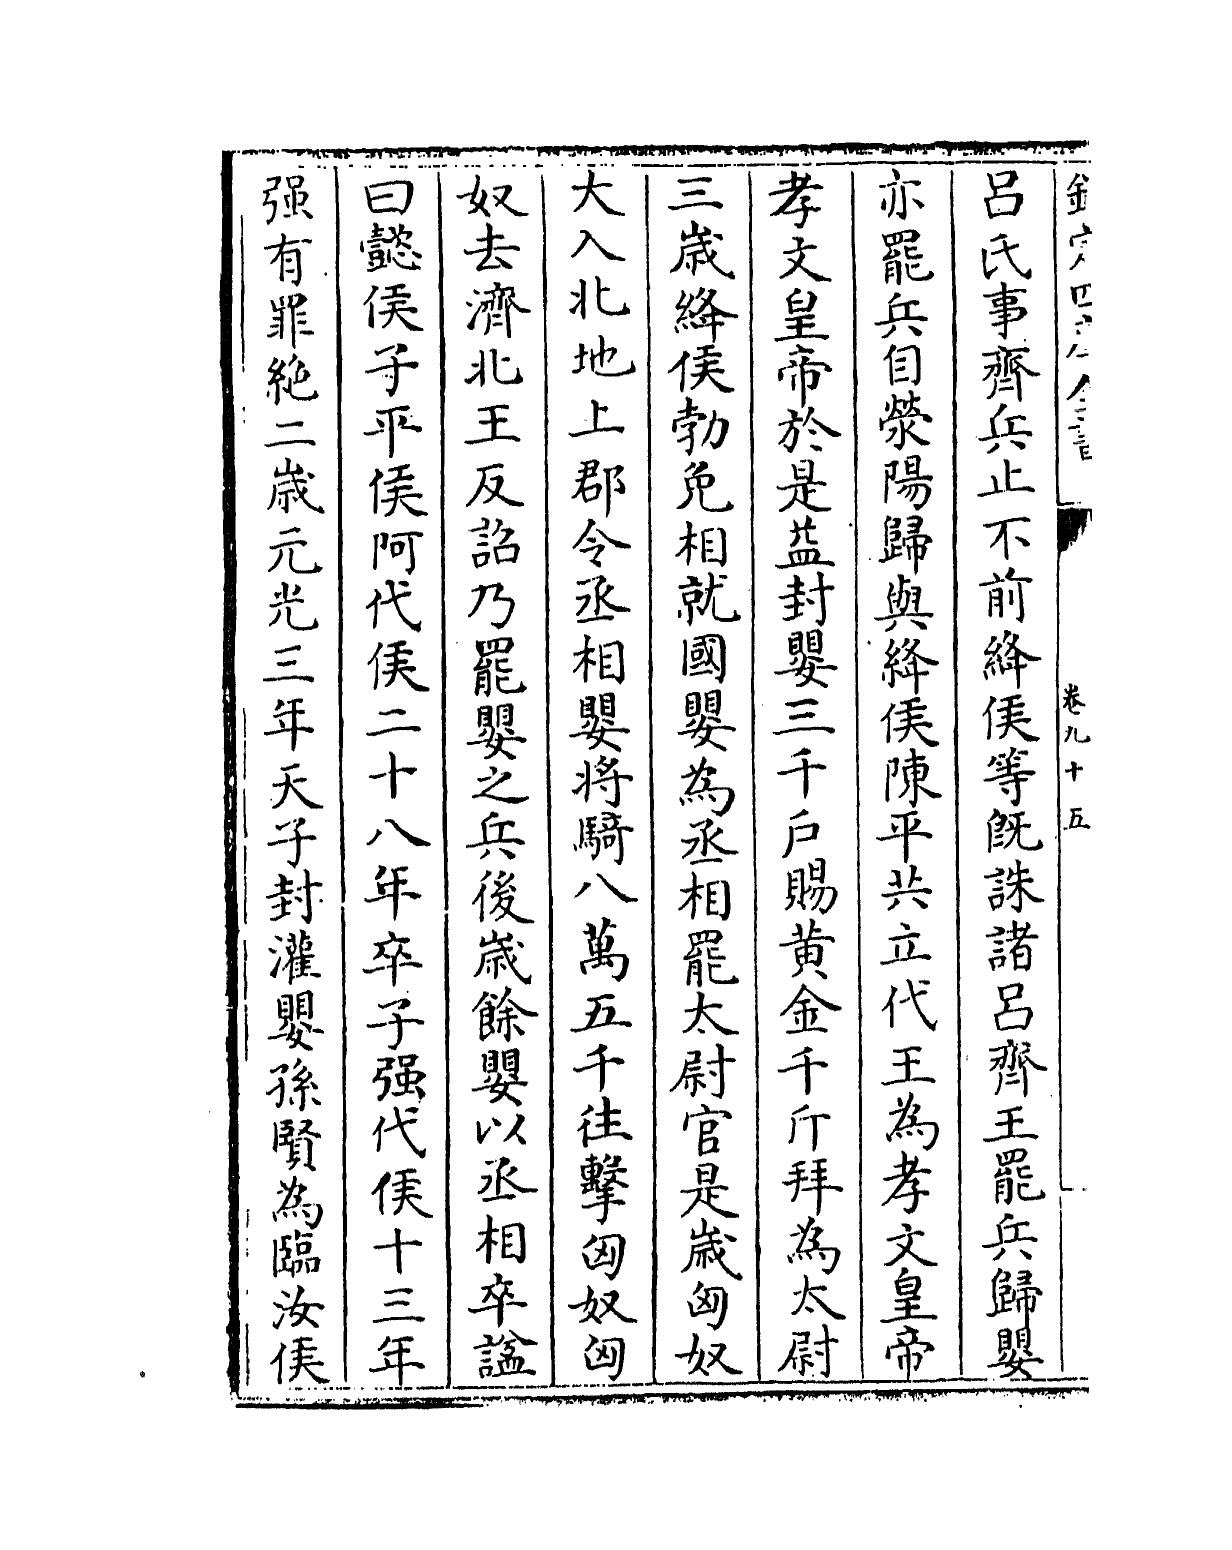 欽定四庫全書
卷九十五
呂氏事齊兵止不前絳侯等既誅諸呂齊王罷兵歸嬰
亦罷兵自滎陽歸與絳侯陳平共立代王為孝文皇帝
孝文皇帝於是益封嬰三千戶賜黃金千斤拜為太尉
三歲絳侯勃免相就國嬰為丞相罷太尉官是歲匈奴
大入北地上郡令丞相嬰將騎八萬五千往擊匈奴匈
奴去濟北王反詔乃罷嬰之兵後歲餘嬰以丞相卒諡
曰懿侯子平侯阿代侯二十八年卒子强代侯十三年
强有罪絶二歲元光三年天子封灌嬰孫賢為臨汝侯